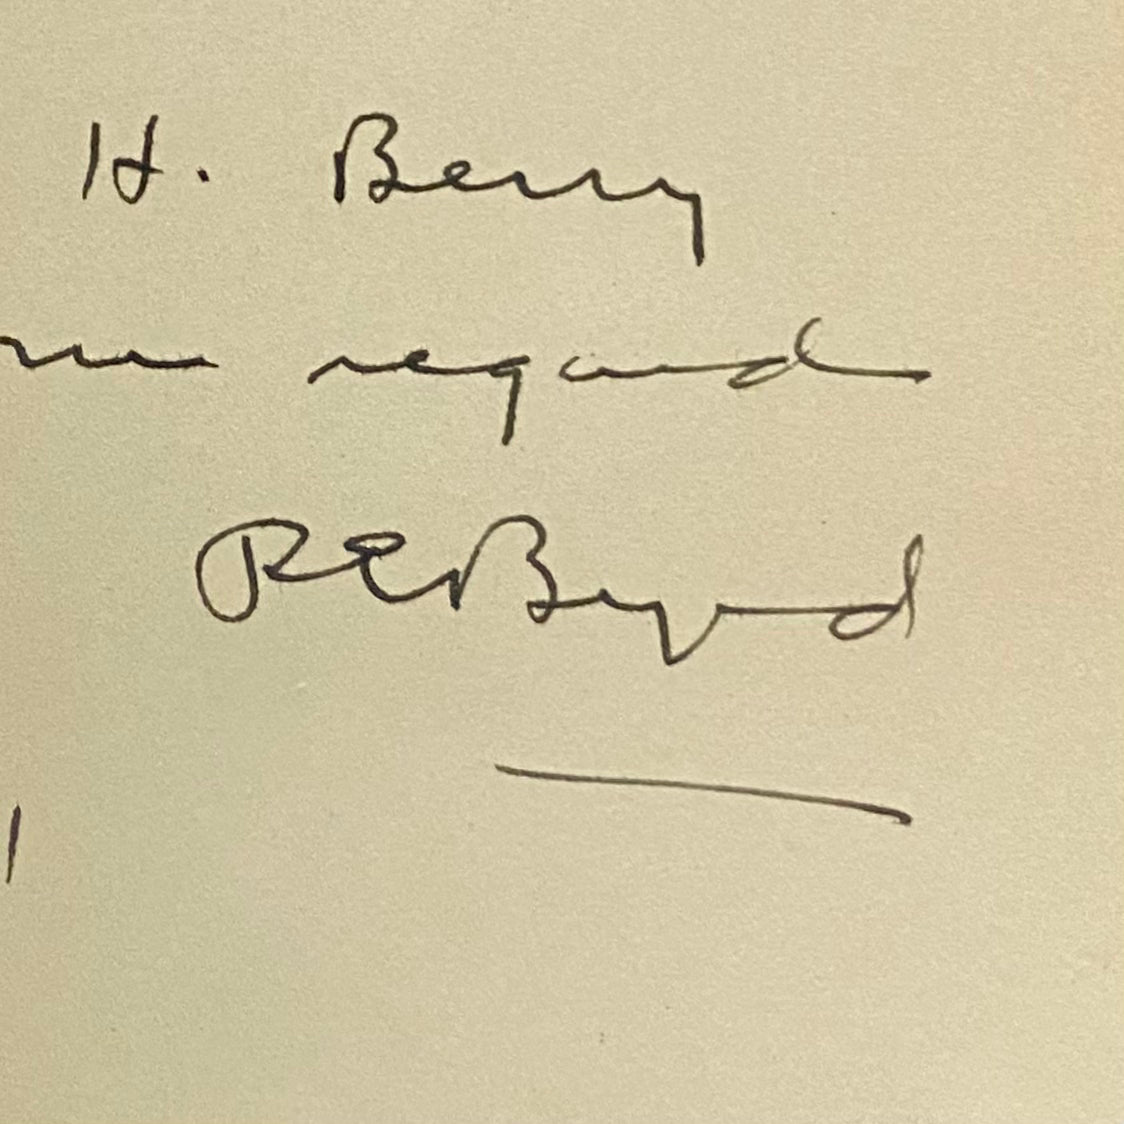 H. Berry
regards
REByrd